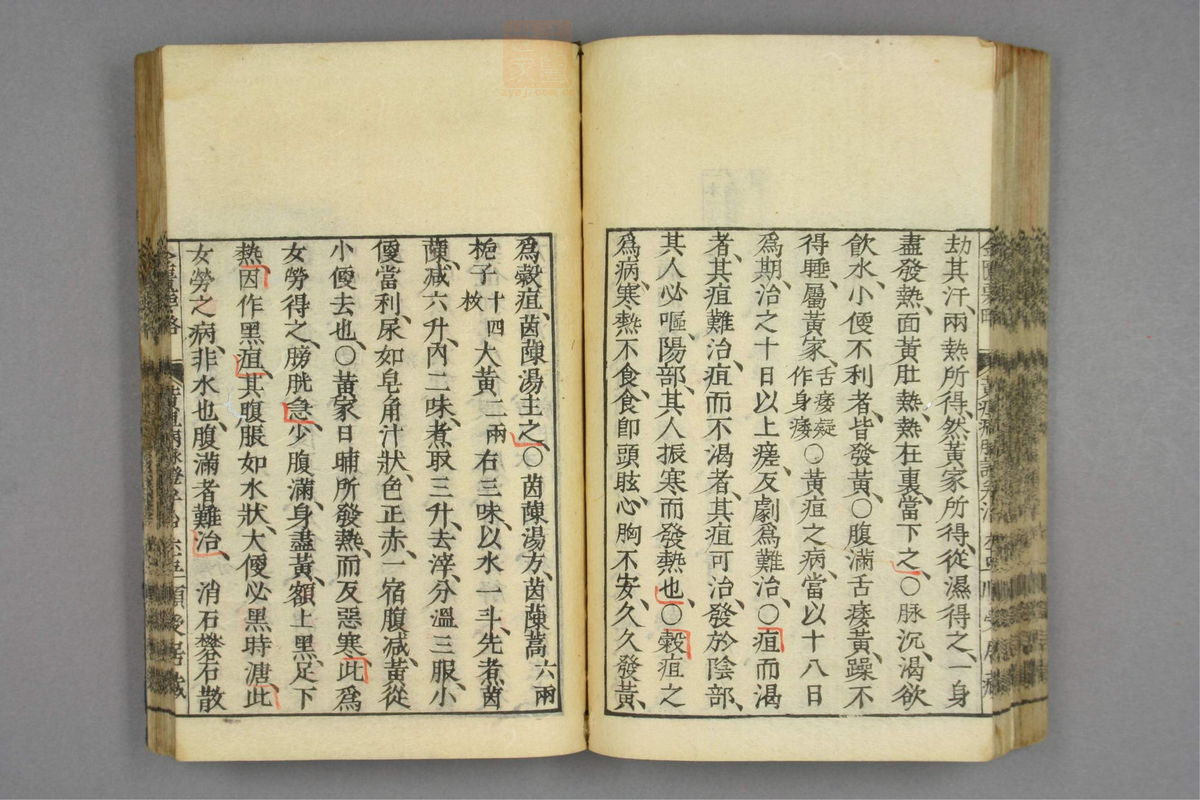 劫其汗、兩熱所得、然黃家所得、從濕得之、一身
盡發熱、面黃肚熱、熱在裏、當下之、○脉沉、渴欲
飲水、小便不利者、皆發黃、○腹滿舌痿黃、躁不
得睡、屬黃家、舌痿疑作身痿○黃疸之病、當以十八日
爲期、治之十日以上瘥、反劇爲難治、○疸而渴
者、其疸難治、疸而不渴者、其疸可治、發於陰部、
其人必嘔、陽部、其人振寒而發熱也、○穀疸之
爲病、寒熱不食、食卽頭眩、心胸不安、久久發黃、
爲穀疸、茵蔯湯主之、○茵蔯湯方、茵蔯蒿六兩
梔子十四枚大黃二兩右三味、以水一斗、先煮茵
蔯、減六升、內二味、煮取三升、去滓、分溫三服、小
便當利、尿如皂角汁狀、色正赤、一宿腹減、黃從
小便去也、○黃家日晡所發熱、而反惡寒、此爲
女勞得之、膀胱急、少腹滿、身盡黃、額上黑、足下
熱、因作黑疸、其腹脹如水狀、大便必黑、時溏、此
女勞之病、非水也、腹滿者難治、消石礬石散